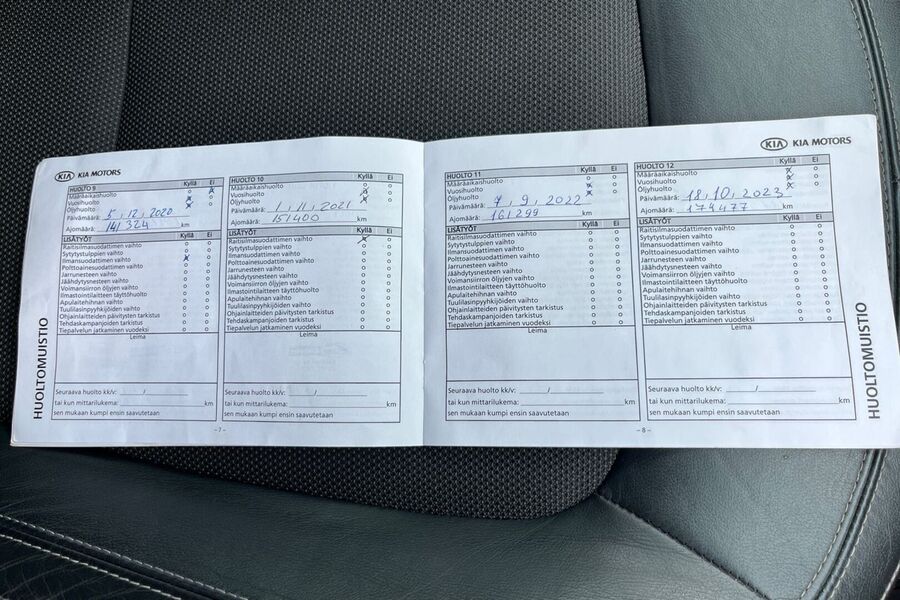 KIA KIA MOTORS
HUOLTO 9 Kyllä Ei
Määräaikaishuolto
Vuosihuolto
Öljyhuolto
Päivämäärä: 5.12.2020
Ajomäärä: 141324 km
LISÄTYÖT Kyllä Ei
Raitisilmasuodattimen vaihto
Sytytystulppien vaihto
Ilmansuodattimen vaihto
Polttoainesuodattimen vaihto
Jarrunesteen vaihto
Jäähdytysnesteen vaihto
Voimansiirron öljyjen vaihto
Ilmastointilaitteen täyttöhuolto
Apulaitehihnan vaihto
Tuulilasinpyyhkijöiden vaihto
Ohjainlaitteiden päivitysten tarkistus
Tehdaskampanjoiden tarkistus
Tiepalvelun jatkaminen vuodeksi
Leima
Seuraava huolto kk/v: /
tai kun mittarilukema: km
sen mukaan kumpi ensin saavutetaan
HUOLTO 10 Kyllä Ei
Määräaikaishuolto
Vuosihuolto
Öljyhuolto
Päivämäärä: 1.11.2021
Ajomäärä: 151400 km
LISÄTYÖT Kyllä Ei
Raitisilmasuodattimen vaihto
Sytytystulppien vaihto
Ilmansuodattimen vaihto
Polttoainesuodattimen vaihto
Jarrunesteen vaihto
Jäähdytysnesteen vaihto
Voimansiirron öljyjen vaihto
Ilmastointilaitteen täyttöhuolto
Apulaitehihnan vaihto
Tuulilasinpyyhkijöiden vaihto
Ohjainlaitteiden päivitysten tarkistus
Tehdaskampanjoiden tarkistus
Tiepalvelun jatkaminen vuodeksi
Leima
Seuraava huolto kk/v: /
tai kun mittarilukema: km
sen mukaan kumpi ensin saavutetaan
HUOLTOMUISTIO
–7–
KIA KIA MOTORS
HUOLTO 11 Kyllä Ei
Määräaikaishuolto
Vuosihuolto
Öljyhuolto
Päivämäärä: 9.2022
Ajomäärä: 161299 km
LISÄTYÖT Kyllä Ei
Raitisilmasuodattimen vaihto
Sytytystulppien vaihto
Ilmansuodattimen vaihto
Polttoainesuodattimen vaihto
Jarrunesteen vaihto
Jäähdytysnesteen vaihto
Voimansiirron öljyjen vaihto
Ilmastointilaitteen täyttöhuolto
Apulaitehihnan vaihto
Tuulilasinpyyhkijöiden vaihto
Ohjainlaitteiden päivitysten tarkistus
Tehdaskampanjoiden tarkistus
Tiepalvelun jatkaminen vuodeksi
Leima
Seuraava huolto kk/v: /
tai kun mittarilukema: km
sen mukaan kumpi ensin saavutetaan
HUOLTO 12 Kyllä Ei
Määräaikaishuolto
Vuosihuolto
Öljyhuolto
Päivämäärä: 18.10.2023
Ajomäärä: 174477 km
LISÄTYÖT Kyllä Ei
Raitisilmasuodattimen vaihto
Sytytystulppien vaihto
Ilmansuodattimen vaihto
Polttoainesuodattimen vaihto
Jarrunesteen vaihto
Jäähdytysnesteen vaihto
Voimansiirron öljyjen vaihto
Ilmastointilaitteen täyttöhuolto
Apulaitehihnan vaihto
Tuulilasinpyyhkijöiden vaihto
Ohjainlaitteiden päivitysten tarkistus
Tehdaskampanjoiden tarkistus
Tiepalvelun jatkaminen vuodeksi
Leima
Seuraava huolto kk/v: /
tai kun mittarilukema: km
sen mukaan kumpi ensin saavutetaan
HUOLTOMUISTIO
–8–